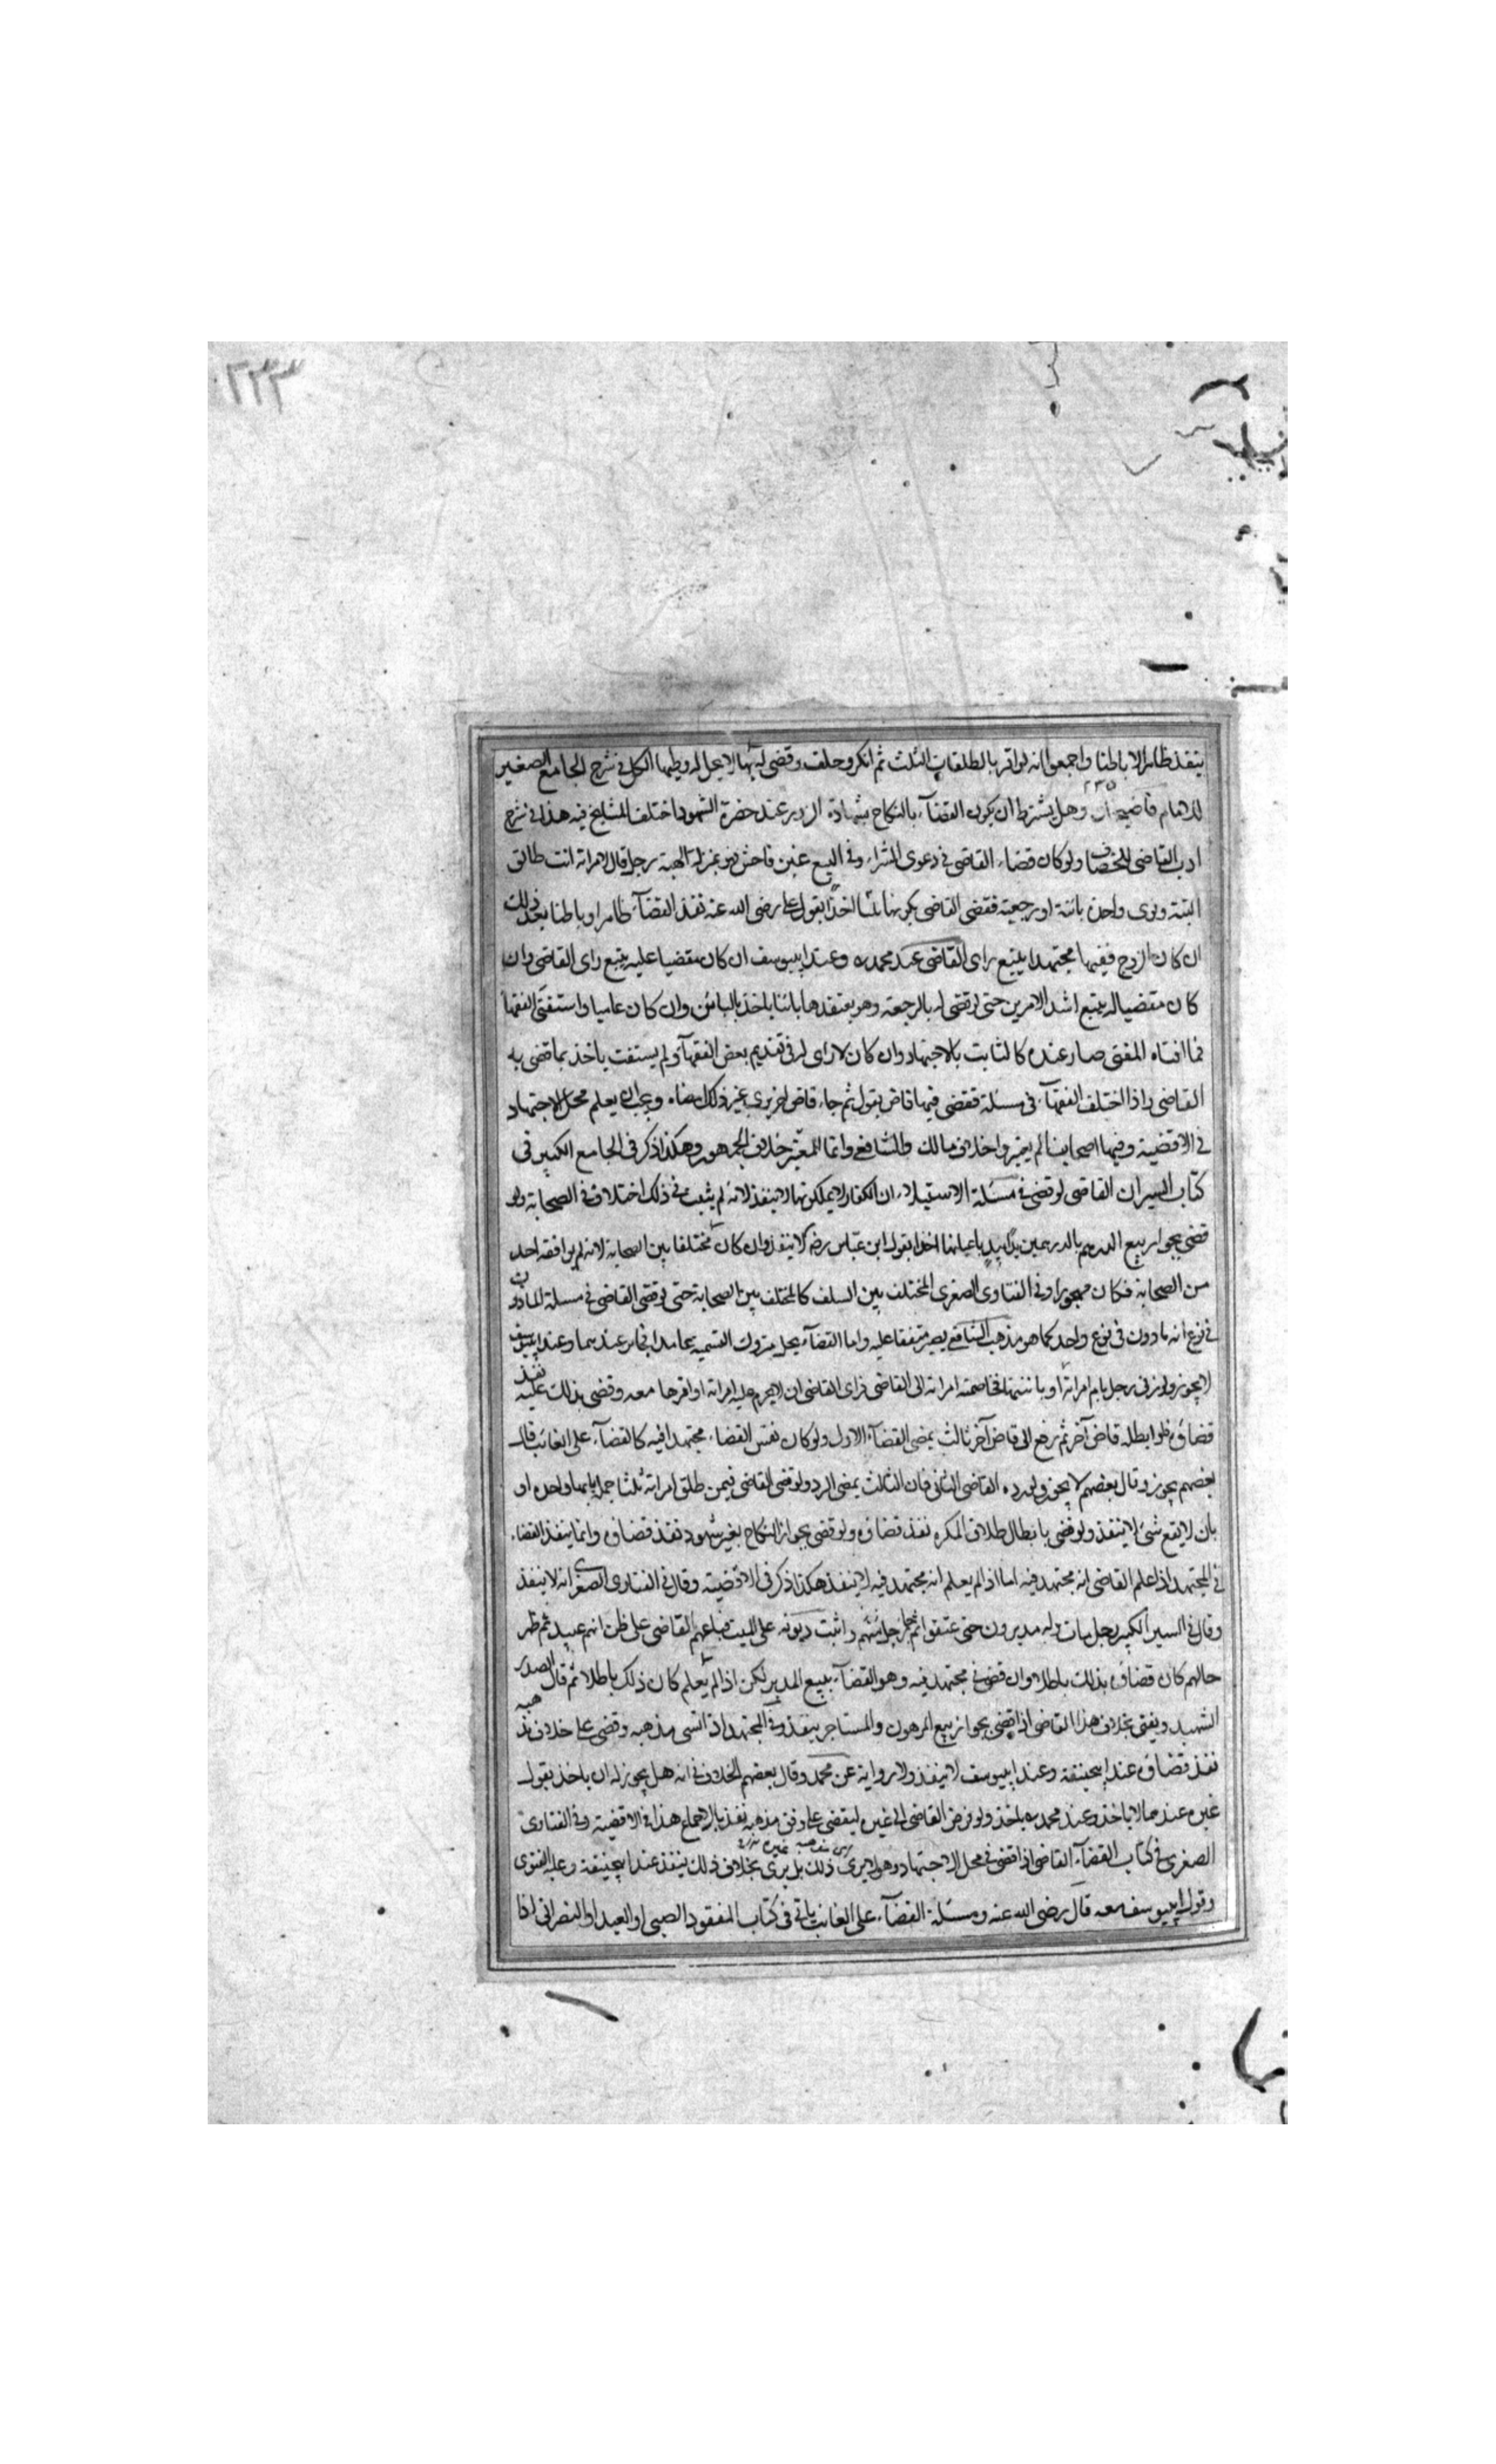 ٢٣٣
ينفذ ظاهرا لا باطنا واجمعوا انه لو اقر بالطلقات الثلث ثم انكر وحلف وقضى له بها لا يحل له وطيها الكل فى شرح الجامع الصغير
للامام قاضيخان وهل يشترط ان يكون القضاء بالنكاح بشهادة الزور عند حضرة الشهود اختلف المشايخ فيه هذا فى شرح
ادب القاضى للخصاف ولو كان قضاء القاضى فى دعوى الشراء وفى البيع غبن فاحش فهو بمنزلة الهبة رجل قال لامراته انت طالق
البتة ونوى واحدة بائنة او رجعية فقضى القاضى بكونها ثلثا اخذا بقول على رضى الله عنه نفذ القضاء ظاهرا وباطنا بعد ذلك
ان كان الزوج فقيها مجتهدا يتبع راى القاضى عند محمد ره وعند ابيوسف ان كان مقضيا عليه يتبع راى القاضى وان
كان مقضيا له يتبع اشد الامرين حتى لو قضى له بالرجعة وهو يعتقدها بائنا ياخذ بالبائن وان كان عاميا واستفتى الفقها
فما افتاه المفتى صار عنده كالثابت بالاجتهاد وان كان لا راى له فى تقديم بعض الفقهاء ولم يستفت ياخذ بما قضى به
القاضى واذا اختلف الفقهاء فى مسئلة فقضى فيها قاض بقول ثم جاء قاض اخر يرى غير ذلك امضاه ويجب ان يعلم محل الاجتهاد
فى الاقضية وفيها اصحابنا لم يعتبروا خلاف مالك والشافعى وانما المعتبر خلاف الجمهور وهكذا ذكر فى الجامع الكبير فى
كتاب السير ان القاضى لو قضى فى مسئلة الاستيلاء ان الكفار لا يملكونها لا ينفذ لانه لم يثبت فى ذلك اختلاف فى الصحابة ولو
قضى بجواز بيع الدرهم بالدرهمين يدا بيد باعيانها اخذا بقول ابن عباس رضه لا ينفذ وان كان مختلفا بين الصحابة لانه لم يوافقه احد
من الصحابة فكان مهجورا وفى الفتاوى الصغرى المختلف بين السلف كالمختلف بين الصحابة حتى لو قضى القاضى فى مسئلة الماذون
فى نوع انه ماذون فى نوع واحد كما هو مذهب الشافعى يصير متفقا عليه واما القضاء بحل متروك التسمية عامدا فجائز عندهما وعند ابيوسف
لا يجوز ولو زنى رجل بام امراته او بابنتها فخاصمته امراته الى القاضى فراى القاضى ان لا يحرم عليه امراته او اقرها معه وقضى بذلك عليه نفذ
قضاؤه فلو ابطله قاض آخر ثم رفع الى قاض آخر ثالث يمضى القضاء الاول ولو كان نفس القضاء مجتهدا فيه كالقضاء على الغائب قال
بعضهم يجوز وقال بعضهم لا يجوز ولو رده القاضى الثانى فان الثالث يمضى الرد ولو قضى القاضى فيمن طلق امراته ثلثا جملة بانها واحدة او
بان لا يقع شئ لا ينفذ ولو قضى بابطال طلاق المكره نفذ قضاؤه ولو قضى بجواز النكاح بغير شهود نفذ قضاؤه وانما ينفذ القضاء
فى المجتهد اذا علم القاضى انه مجتهد فيه اما اذا لم يعلم انه مجتهد فيه لا ينفذ هكذا ذكر فى الاقضية وقال فى الفتاوى الصغرى انه لا ينفذ
وقال فى السير الكبير رجل مات وله مدبرون حتى عتقوا ثم جاء رجل واثبت ديونه على الميت فباعهم القاضى على ظن انهم عبيد ثم ظهر
حالهم كان قضاؤه بذلك باطلا وان قضى فى مجتهد فيه وهو القضاء ببيع المدبر لكن اذا لم يعلم كان ذلك باطلا ثم قال الصدر
الشهيد ويفتى بخلاف هذا القاضى اذا قضى بجواز بيع المرهون والمستاجر ينفذ وفى المجتهد اذا نسى مذهبه وقضى على خلاف مذهبه
نفذ قضاؤه عند ابيحنيفة وعند ابيوسف لا ينفذ ولا رواية عن محمد وقال بعضهم الخلاف فى انه هل يجوز له ان ياخذ بقول
غيره عندهما لا ياخذ وعند محمد ره ياخذ ولو فوض القاضى الى غيره ليقضى على وفق مذهبه نفذ بالاجماع هذا فى الاقضية وفى الفتاوى
الصغرى فى كتاب القضاء القاضى اذا قضى فى محل الاجتهاد وهو لا يرى ذلك بل يرى بخلاف ذلك ينفذ عند ابيحنيفة وعليه الفتوى
وقول ابيوسف معه قال رضى الله عنه ومسئلة القضاء على الغائب ياتى فى كتاب المفقود الصبى او العبد او النصرانى اذا